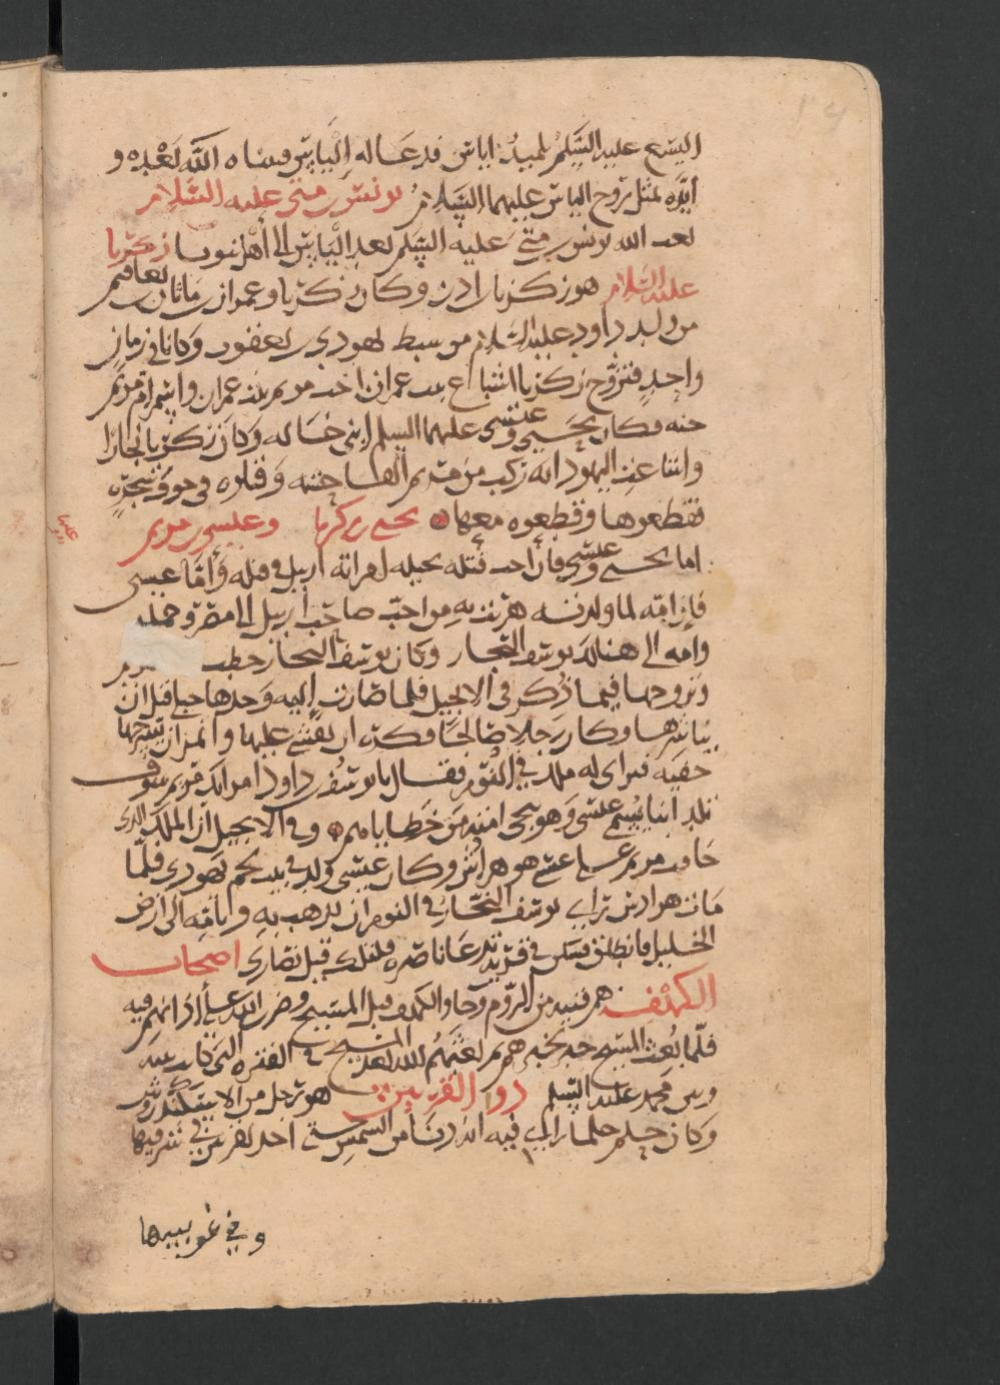 اليسع عليه السلم تلميذ الياس فدعا له الياس فنباه الله بعده و
ايده بمثل روح الياس عليهما السلام يونس بن متى عليه السلام
بعث الله يونس بن متى عليه السلم بعد الياس الى أهل نينوى زكريا
عليه السلام هو زكريا بن ادن وكان زكريا وعمران بن ماثان
من ولد داود عليه السلام من سبط يهودى بن يعقوب وكانا في زمان
واحد فتزوج زكريا اشباع بنت عمران اخت مريم بنت عمران واسم ام مريم
حنه فكان يحيى وعيسى عليهما السلم ابنى خاله وكان زكريا نجارا
واشاعت اليهود انه ركب من مريم الفاحشه وقتلوه في جوف شجرة
فقطعوها وقطعوه معها يحيى بن زكريا وعيسى بن مريم
عليهما السلم
اما يحيى وعيسى فان احب قتله بحيله لامراته ازبيل في قتله وأما عيسى
فإن امه لما ولدته هربت به من احب صاحب أزبيل الى مصر وحمله
وامه الى هنالك يوسف النجار وكان يوسف النجار خطب مريم
وتزوجها فيما ذكر في الانجيل فلما صارت إليه وجدها حبلى قبل ان
يباشرها وكان رجلا صالحا فكره ان يفشى عليها وائتمر ان يسرحها
خفية فتراى له ملك في النوم فقال يا يوسف بن داود ان امراتك مريم سوف
تلد ابنا يسمى عيسى وهو ينجى امته من خطاياهم وفي الانجيل أن الملك الذي
خافت مريم على عيسى هو هرادس وكان عيسى ولد في بيت لحم يهودى فلما
مات هرادس تراى ليوسف النجار في النوم ان يذهب به وبامه الى ارض
الخليل فانطلق فسكن في قرية تدعا ناصره فلذلك قيل نصارى اصحاب
الكهف هم فتية من الروم دخلوا الكهف قبل المسيح وضرب الله على أذانهم فيه
فلما بعث المسيح خبر بخبرهم ثم بعثهم الله بعد المسيح في الفترة التي كانت بينه
وبين محمد عليه السلم ذو القرنين هو رجل من الاسكندرية
وكان حلم حلما راى فيه انه دنا من الشمس حتى اخذ بقرنيها في شرقيها
وفي غربيها